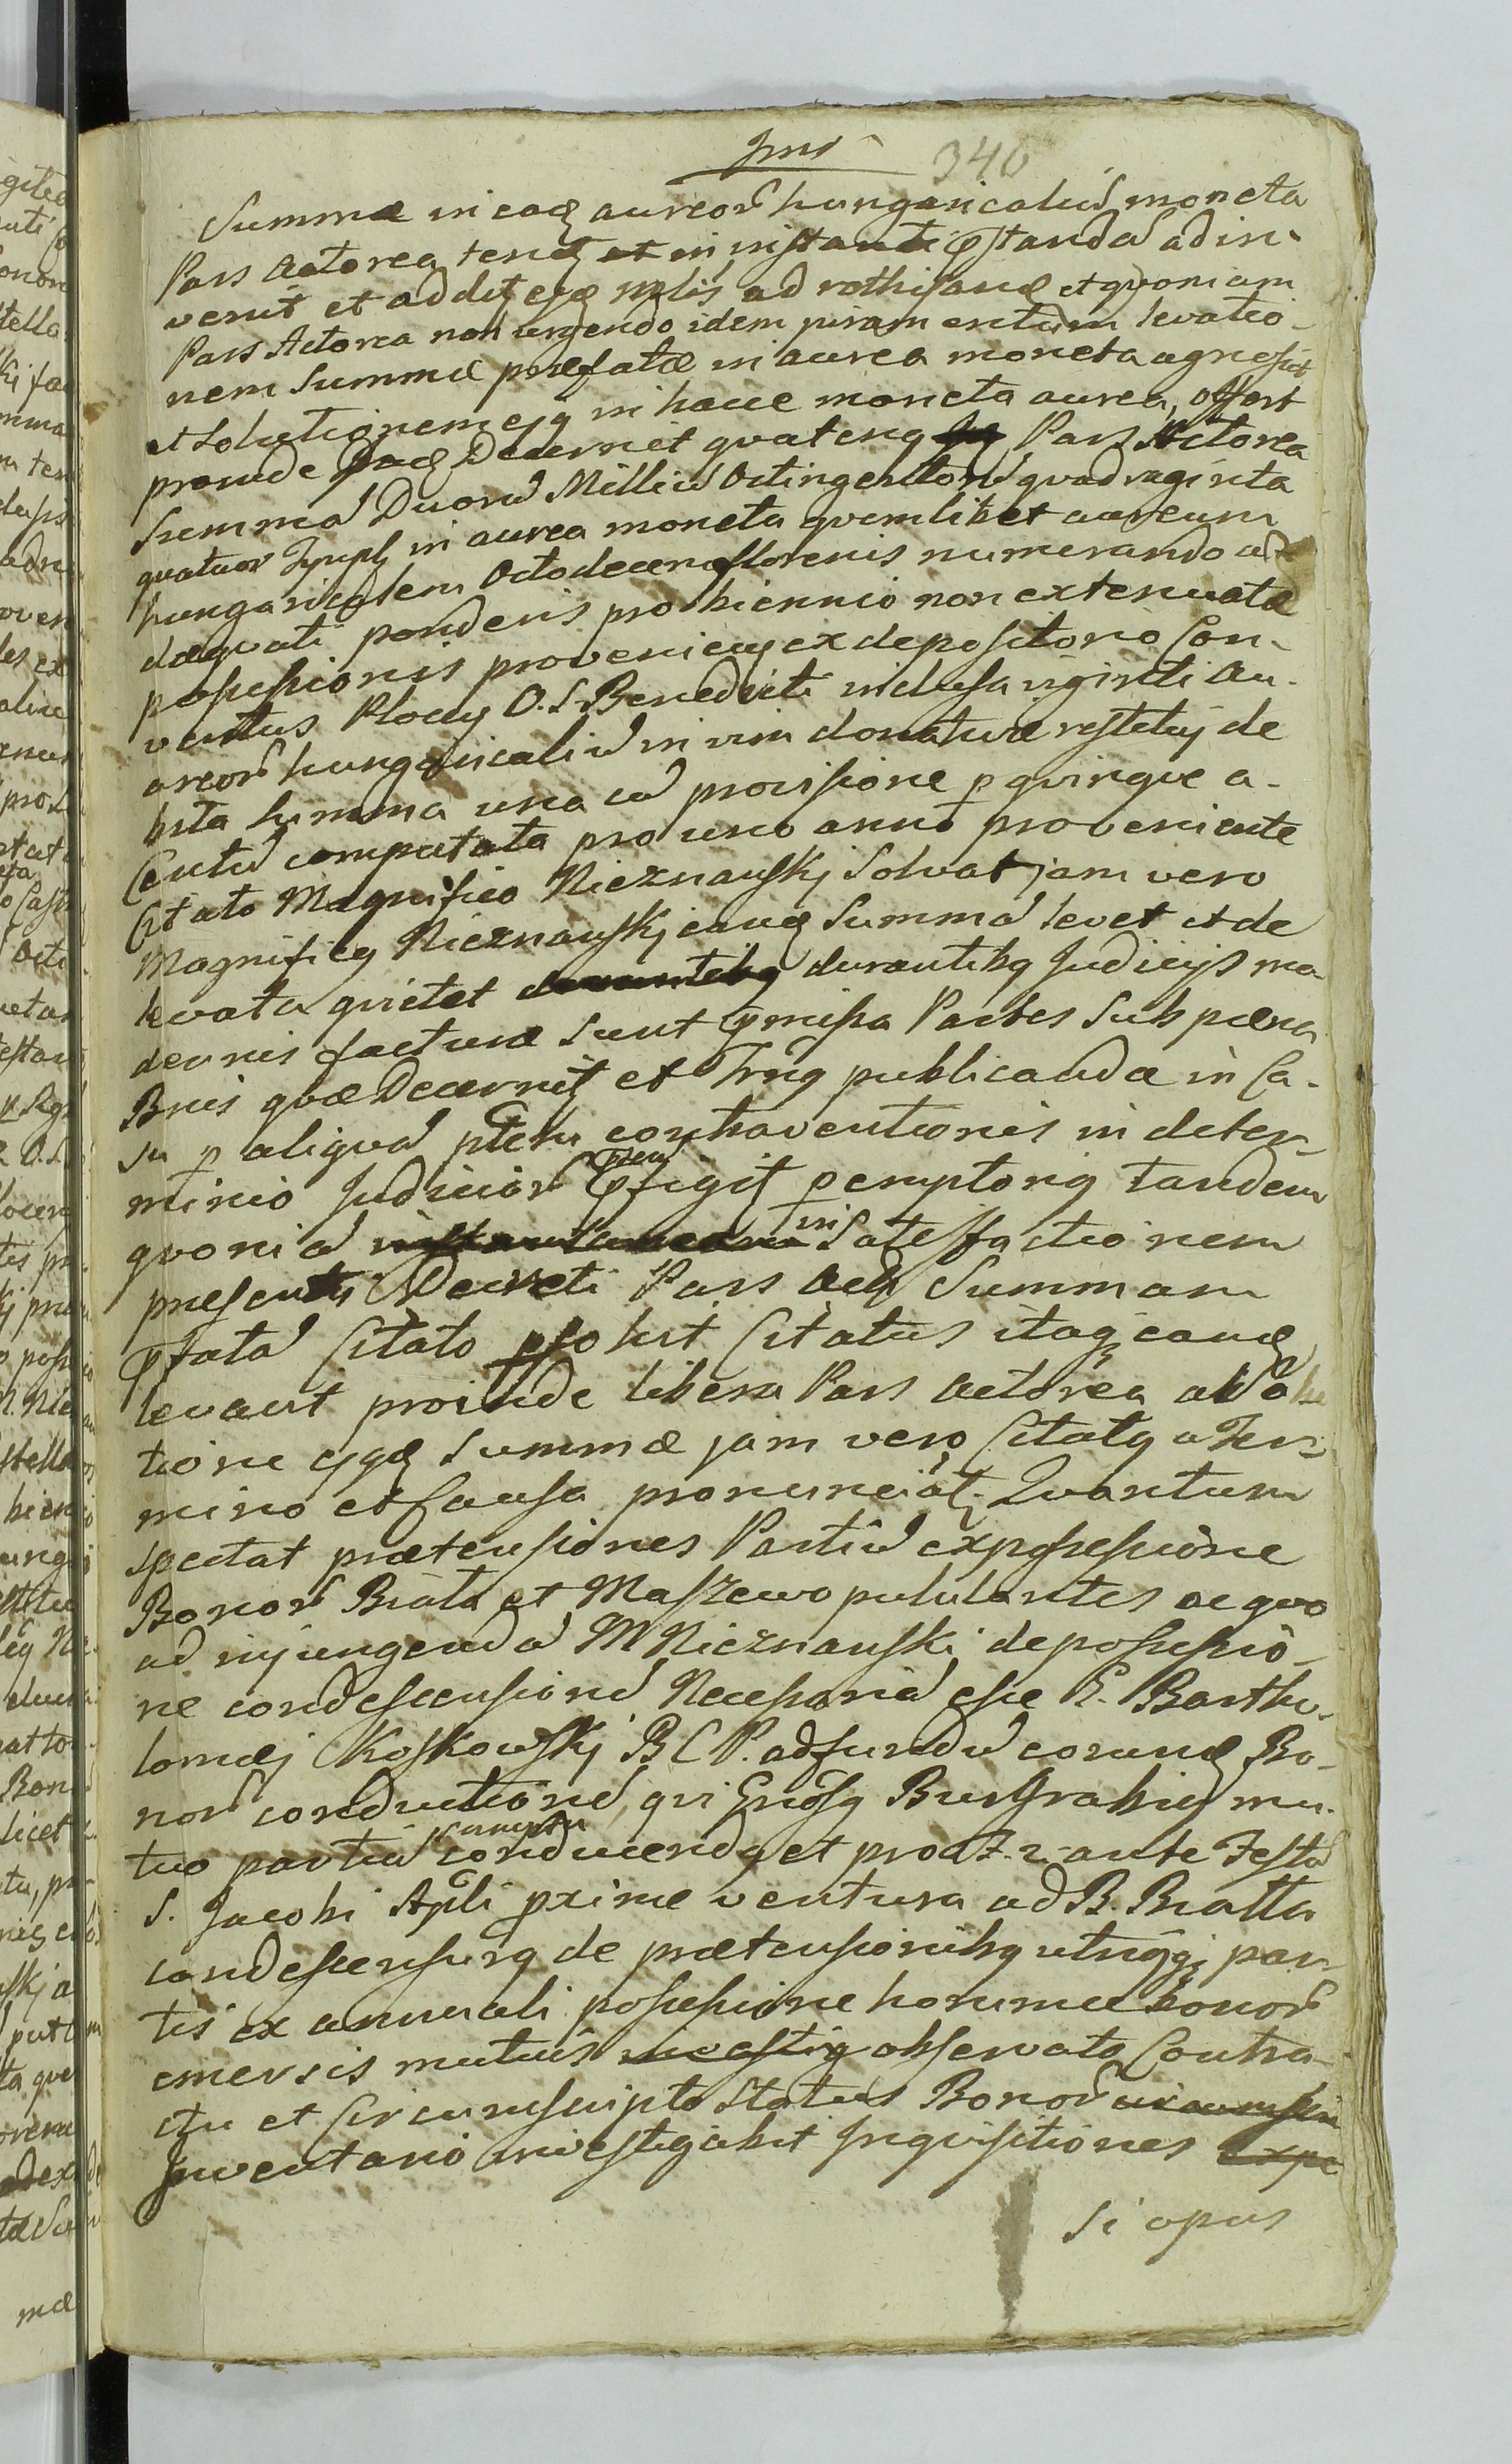 346
Summæ in eadę aureor̃ hungaricaliũ moneta
Pars Actorea tenetę et in instanti pstandã adin-
venit et
Pars Actorea non urgendo idem juramentum levatio-
nem Summæ præfatæ in aurea moneta agnoscit
et Solutionem ejq in hacce moneta aurea offert
proinde Decernit quatenq Pars Actorea
Summã Duorũ Milliũ Octingentorũ quadraginta
quatuor Tynph in aurea moneta quemlibet aureum
hungaricalem Octodecem florenis numerando ad-
æquati ponderis pro biennio non extenuatæ
possessionis proveniens ex depositorio Con-
ventus Plocen O. S. Benedicti inclusa viginti Au-
areor̃ hungaricaliũ in vim donativæ restitu de
bita Summa una cũ provisione p quinque a
Centũ computata pro uno anno proveniente
Citato Magnifico Nieznanskj Solvat jam vero
Magnificq Nieznanskj eandę Summã levet et de
levata quietet durantibq durantibq Judicijs mo-
dernis facturæ Sunt pmissa Partes Sub pæna
Bnis quæ Decernitę et Trnq publicanda in Ca-
su p aliquã ptem contraventionis in deter-
minio Judicior̃ psen pfigitę peremptoriq tandem
quoniã in Satisfactionem
præsentis Decreti Pars Actę Summam
pfatã Citato psolvit Citatus itaqꝫ eandę
levavit proinde libera Pars Actorea ab Solu
tione ejqdę Summæ jam vero Citatq a Ter-
mino et Causa pronunciatę. Quantum
spectat prætensiones Partiũ ex possessione
Bonor̃ Biała et Maszewo pululantes ac quo
ad injungendã M Nieznanski de possessio-
ne condescensionẽ Necessariã esse G. Bartho-
lomæj Koskowskj B C P. ad fundũ eorundę Bo-
nor̃ conductionẽ, qui Gnosq Burgrabiq mu-
tuo partiũ sumptu conducendq et pro d. 7. 2. ante Festũ
S. Jacobi Apli pxime ventura ad B. Biała
condescensurq de prætensionibq utriqqꝫ par-
tis ex annuali possessione horumce bonor̃
emersis mutuis investig observato Contra-
ctu et Circumscripto Status Bonor̃ circumscri
Inventario investigabit Inquisitiones expe
Si opus